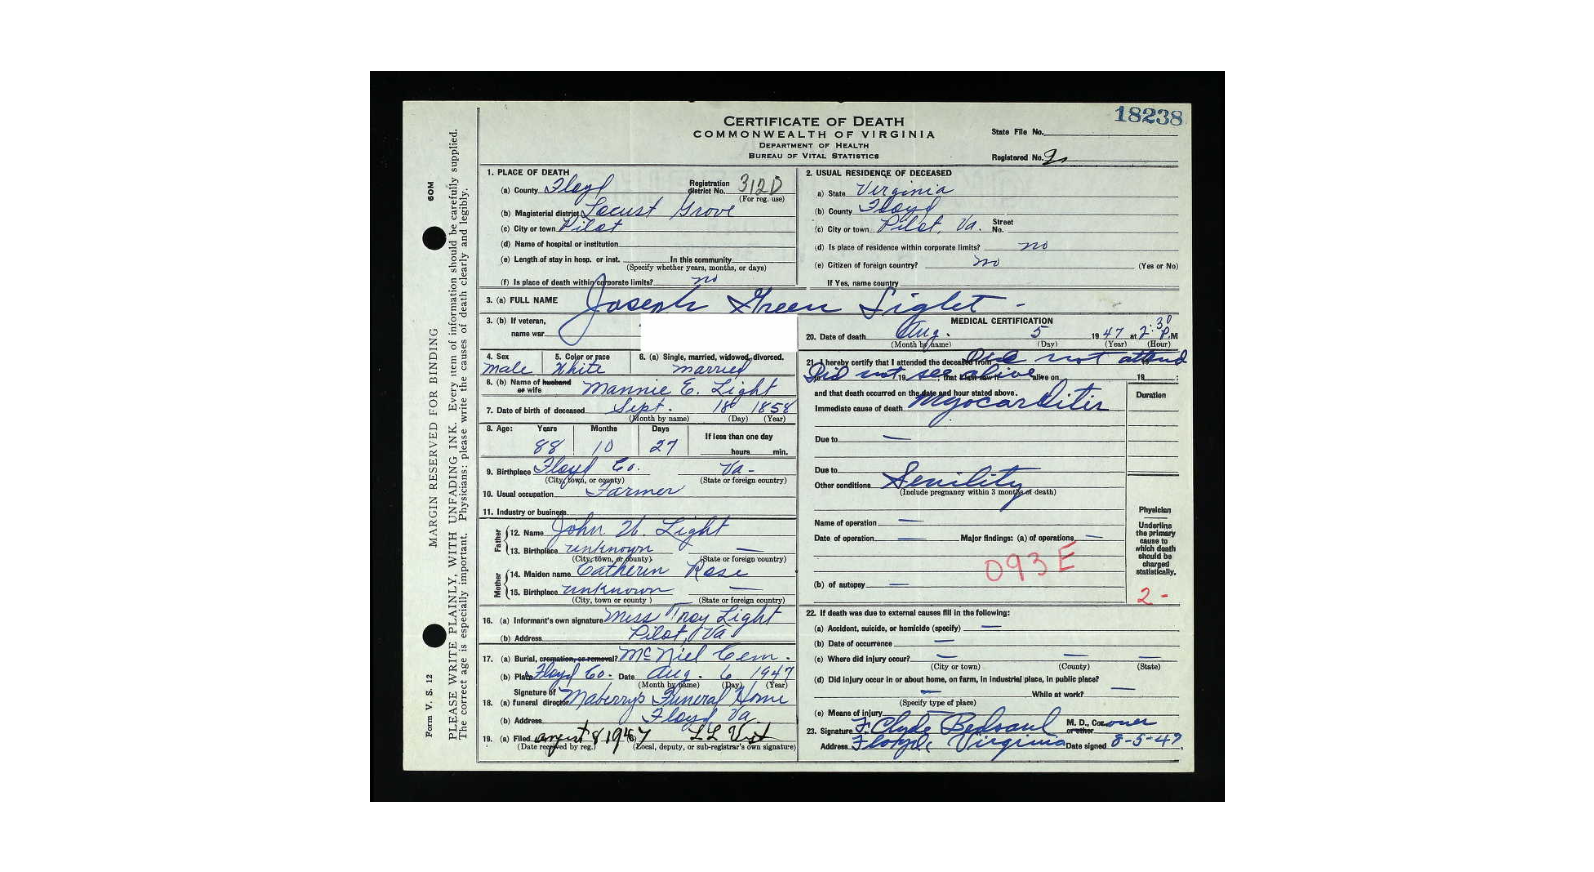 18238
CERTIFICATE OF DEATH
COMMONWEALTH OF VIRGINIA
DEPARTMENT OF HEALTH
BUREAU OF VITAL STATISTICS
State File No.
Registered No.
MARGIN RESERVED FOR BINDING
60M
Form V. S. 12
PLEASE WRITE PLAINLY, WITH UNFADING INK. Every item of information should be carefully supplied.
The correct age is especially important. Physicians: please write the causes of death clearly and legibly.
1. PLACE OF DEATH
(a) County Floyd Registration District No. 312D
(For reg. use)
(b) Magisterial district Locust Grove
(c) City or town Pilot
(d) Name of hospital or institution
(e) Length of stay in hosp. or inst. In this community
(Specify whether years, months, or days)
(f) Is place of death within corporate limits? no
2. USUAL RESIDENCE OF DECEASED
a) State Virginia
(b) County Floyd
(c) City or town Pilot, Va. Street No.
(d) Is place of residence within corporate limits? no
(e) Citizen of foreign country? no (Yes or No)
If Yes, name country
3. (a) FULL NAME Joseph Green Light
3. (b) If veteran,
name war
4. Sex 5. Color or race 6. (a) Single, married, widowed, divorced.
male White married
6. (b) Name of husband or wife Mannie E. Light
7. Date of birth of deceased Sept. 18 1858
(Month by name) (Day) (Year)
8. Age: Years Months Days If less than one day
88 10 27 hours min.
9. Birthplace Floyd Co. Va-
(City, town, or county) (State or foreign country)
10. Usual occupation Farmer
11. Industry or business
Father
12. Name John W. Light
13. Birthplace unknown
(City, town, or county) (State or foreign country)
Mother
14. Maiden name Catherin Rose
15. Birthplace unknown
(City, town or county) (State or foreign country)
16. (a) Informant's own signature Miss Troy Light
(b) Address Pilot, Va
17. (a) Burial, cremation, or removal? McNiel Cem.
(b) Place Floyd Co- Date Aug. 6 1947
(Month by name) (Day) (Year)
18. (a) Signature of funeral director Maberrys Funeral Home
(b) Address Floyd Va.
19. (a) Filed august 8 1947
(Date received by reg.) (Local, deputy, or sub-registrar's own signature)
MEDICAL CERTIFICATION
20. Date of death Aug. 5 1947 at 2:30 P.M
(Month by name) (Day) (Year) (Hour)
21. I hereby certify that I attended the deceased from Did not attend
Did not see alive 19 , that I last saw h alive on 19 ;
and that death occurred on the date and hour stated above.
Duration
Immediate cause of death Myocarditis
Due to
Due to
Other conditions Senility
(Include pregnancy within 3 months of death)
Name of operation
Date of operation Major findings: (a) of operations
093E
(b) of autopsy
Physician
Underline the primary cause to which death should be charged statistically.
2-
22. If death was due to external causes fill in the following:
(a) Accident, suicide, or homicide (specify)
(b) Date of occurrence
(c) Where did injury occur?
(City or town) (County) (State)
(d) Did injury occur in or about home, on farm, in industrial place, in public place?
While at work?
(Specify type of place)
(e) Means of injury
23. Signature F. Clyde Bedsaul M. D., Coroner or other
Address Floyd, Virginia Date signed 8-5-47